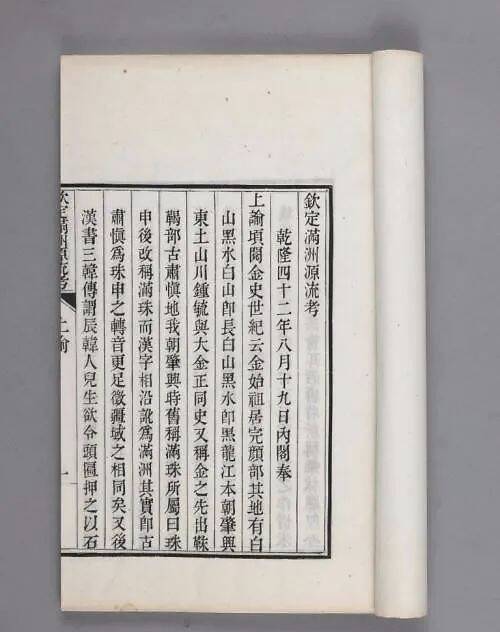 欽定滿洲源流考
乾隆四十二年八月十九日內閣奉
上諭頃閱金史世紀云金始祖居完顏部其地有白
山黑水白山卽長白山黑水卽黑龍江本朝肇興
東土山川鍾毓與大金正同史又稱金之先出靺
鞨部古肅愼地我朝肇興時舊稱滿珠所屬曰珠
申後改稱滿珠而漢字相沿訛爲滿洲其實卽古
肅愼爲珠申之轉音更足徵疆域之相同矣又後
漢書三韓傳謂辰韓人兒生欲令頭匾押之以石
欽定滿洲源流考
上諭
一